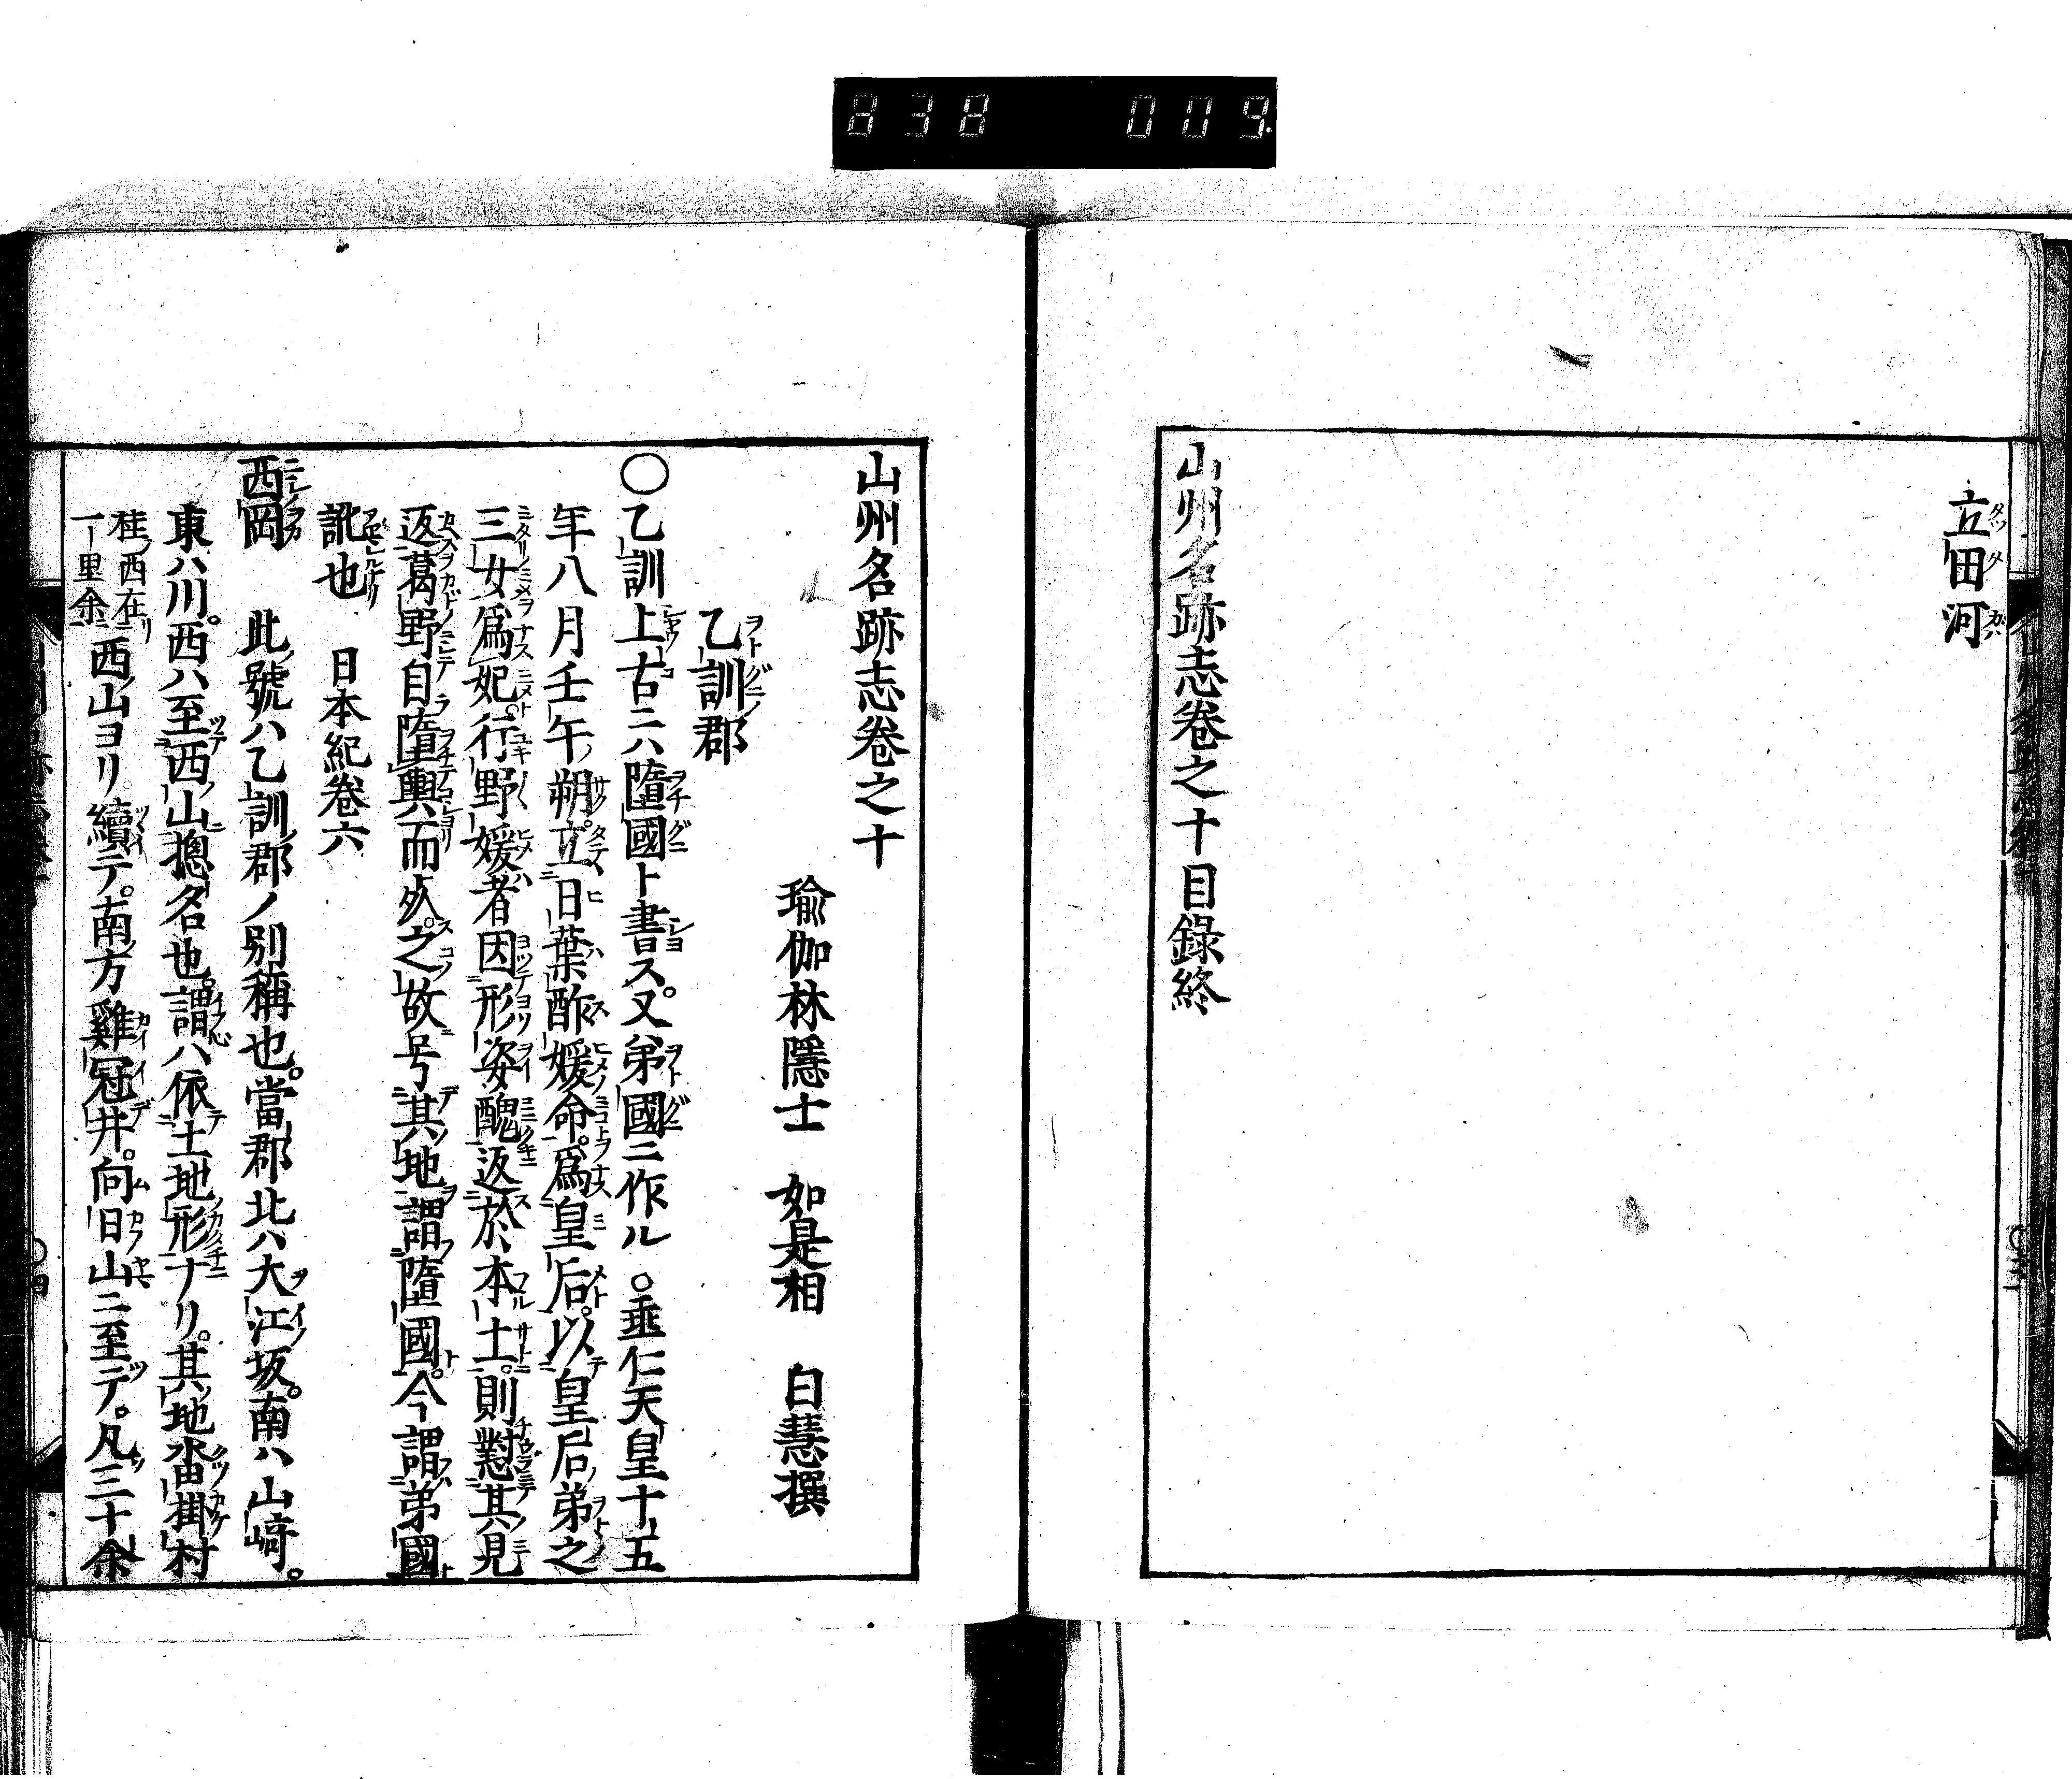 838 009
立田河
山州名跡志卷之十目録終
山州名跡志卷之十
瑜伽林隱士 如是相 白慧撰
乙訓郡
○乙訓 上古ニハ墮國ト書ス。又弟國ニ作ル ○垂仁天皇十五
年八月壬午朔。立日葉酢媛命。爲皇后。以皇后弟之
三女爲妃。行野媛者因形姿醜返於本土。則懟其見
返葛野自墮輿而死。之故号其地謂墮國。今謂弟國
訛也 日本紀卷六
西岡 此號ハ乙訓郡ノ別稱也。當郡北ハ大江坂。南ハ山﨑。
東ハ川。西ハ至西山摠名也。謂ハ依土地形ナリ。其地沓掛村
桂ノ西在リ
一里余
西山ヨリ續テ。南方雞冠井。向日山ニ至テ。凡三十余